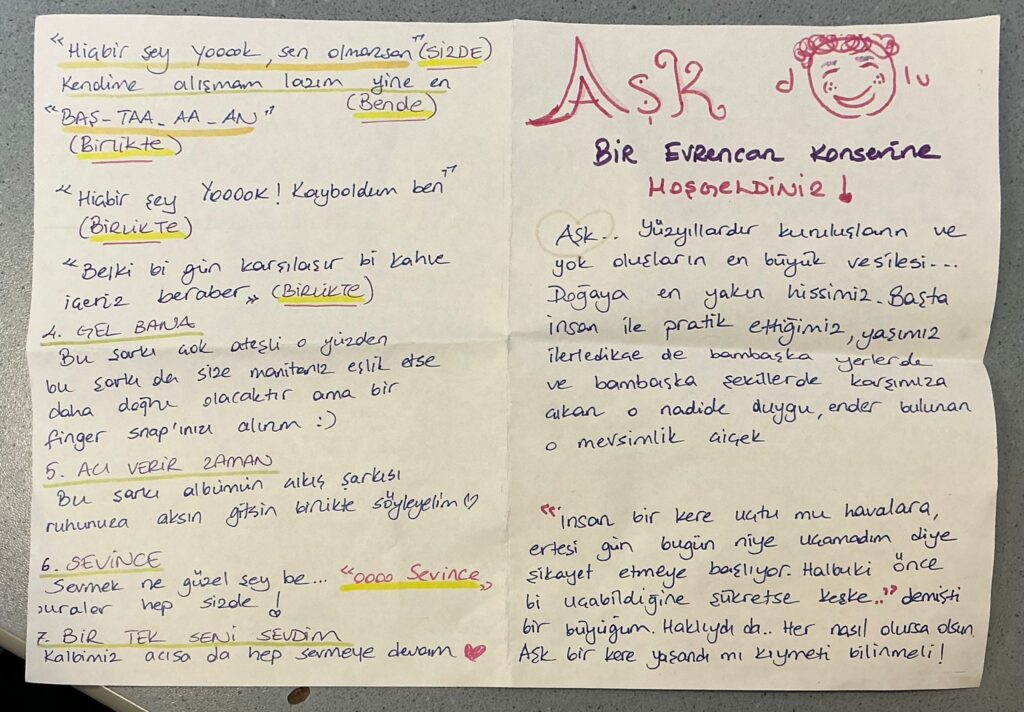 "Hiçbir şey Yoook, sen olmazsan" (SİZDE)
Kendime alışmam lazım yine en
(Bende)
"BAŞ-TAA-AA-AN"
(Birlikte)
"Hiçbir şey Yoook! Kayboldum ben"
(BİRLİKTE)
"Belki bi gün karşılaşır bi kahve
içeriz beraber" (BİRLİKTE)
4. GEL BANA
Bu şarkı çok ateşli o yüzden
bu şarkı da size manitanız eşlik etse
daha doğru olacaktır ama bir
finger snap'inizi alırım :)
5. ACI VERİR ZAMAN
Bu şarkı albümün çıkış şarkısı
ruhunuza aksın gitsin birlikte söyleyelim ♡
6. SEVİNCE
Sevmek ne güzel şey be... "oooo Sevince"
buralar hep sizde!
7. BİR TEK SENİ SEVDİM
Kalbimiz acısa da hep sevmeye devam ♥
AŞK d lu
BİR EVRENCAN KONSERİNE
HOŞGELDİNİZ!
Aşk.. Yüzyıllardır kuruluşların ve
yok oluşların en büyük vesilesi...
Doğaya en yakın hissimiz. Başta
insan ile pratik ettiğimiz, yaşımız
ilerledikçe de bambaşka yerlerde
ve bambaşka şekillerde karşımıza
çıkan o nadide duygu, ender bulunan
o mevsimlik çiçek
"insan bir kere uçtu mu havalara,
ertesi gün bugün niye uçamadım diye
şikayet etmeye başlıyor. Halbuki önce
bi uçabildiğine şükretse keşke.." demişti
bir büyüğüm. Haklıydı da.. Her nasıl olursa olsun
Aşk bir kere yaşandı mı kıymeti bilinmeli!